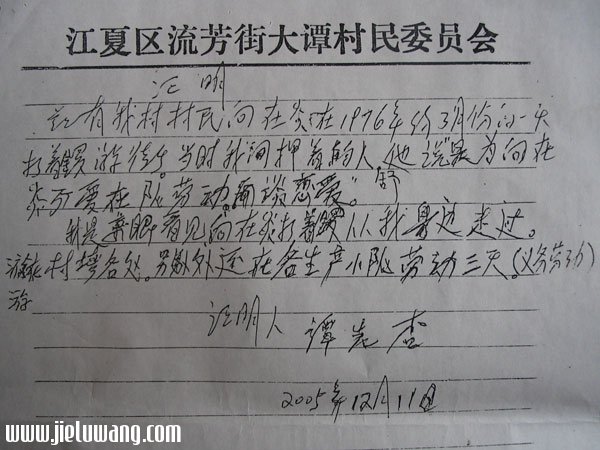 江夏区流芳街大谭村民委员会
证明
兹有我村村民向在炎在1976年约3月份的一天
打着锣游街。当时我问押着的人他说是为向在
炎不爱在队劳动,而谈恋爱。"
我是亲眼看见向在炎打着锣从我身边走过。
村塆各处。另外还在各生产小队劳动三天。(义务劳动)
游
证明人 谭先杏
2005年12月11日
www.jieluwang.com